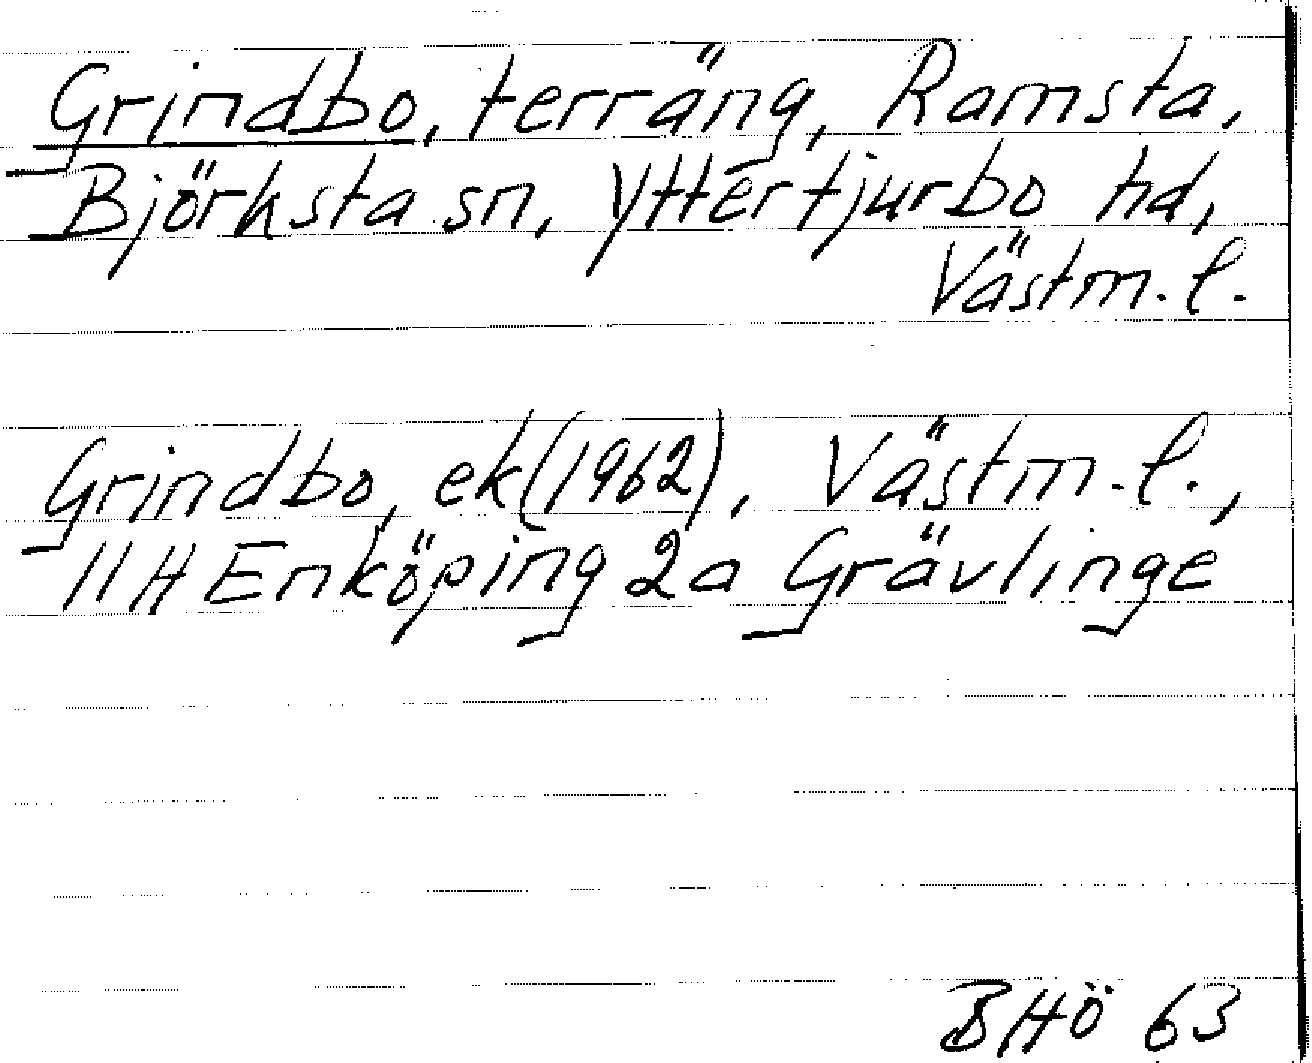 Grindbo, terräng, Ramsta,
Björksta sn, Yttertjurbo hd,
Västm. l.
Grindbo, ek (1962), Västm. l.,
11H Enköping 2a Grävlinge
BHÖ 63